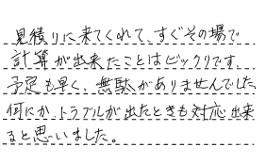 見積りに来てくれて、すぐその場で
計算が出来たことはビックリです。
予定も早く、無駄がありませんでした。
何にか、トラブルが出たときも対応出来
ると思いました。